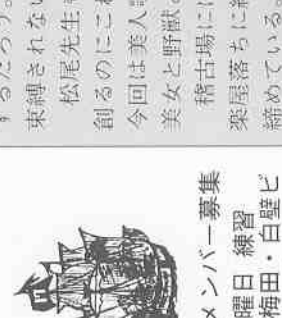 するだろう。
束縛されない
松尾先生
創るのにこれ
今回は美人
美女と野獣。
稽古場に
楽屋落ちに
締めている。
メンバー募集
曜日 練習
梅田・白壁ビ